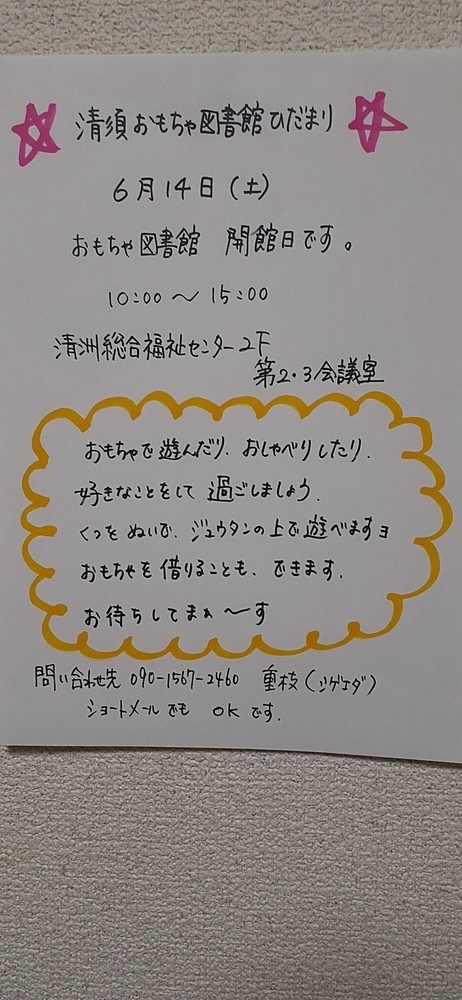 清須おもちゃ図書館ひだまり
6月14日(土)
おもちゃ図書館 開館日です。
10:00〜15:00
清洲総合福祉センター2F
第2・3会議室
おもちゃで遊んだり、おしゃべりしたり、
好きなことをして過ごしましょう。
くつをぬいで、ジュウタンの上で遊べますヨ
おもちゃを借りることも、できます。
お待ちしてまぁ〜す
問い合わせ先 090-1567-2460 重枝(シゲエダ)
ショートメールでも OKです。